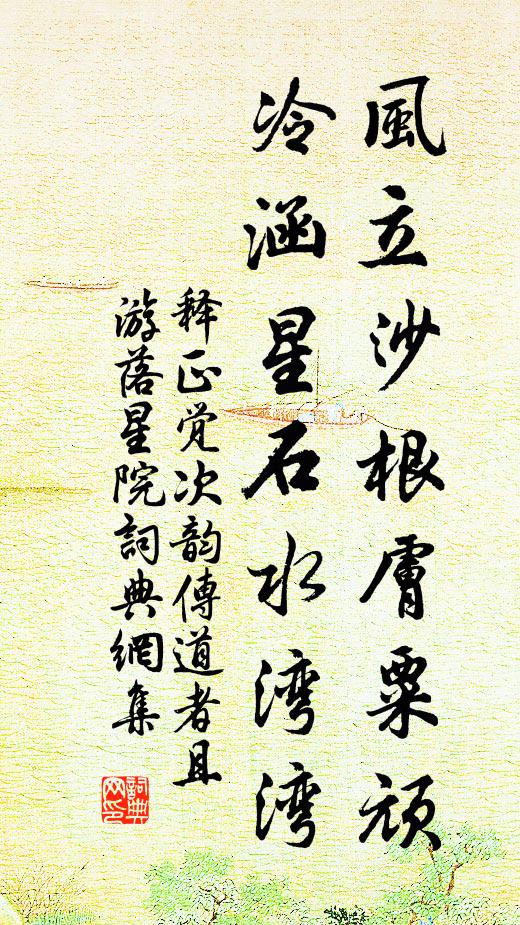 風立沙根膚粟頑
冷涵星石水湾湾
释正觉次韵傳道者且
游落星院詞典網集
詞典网印